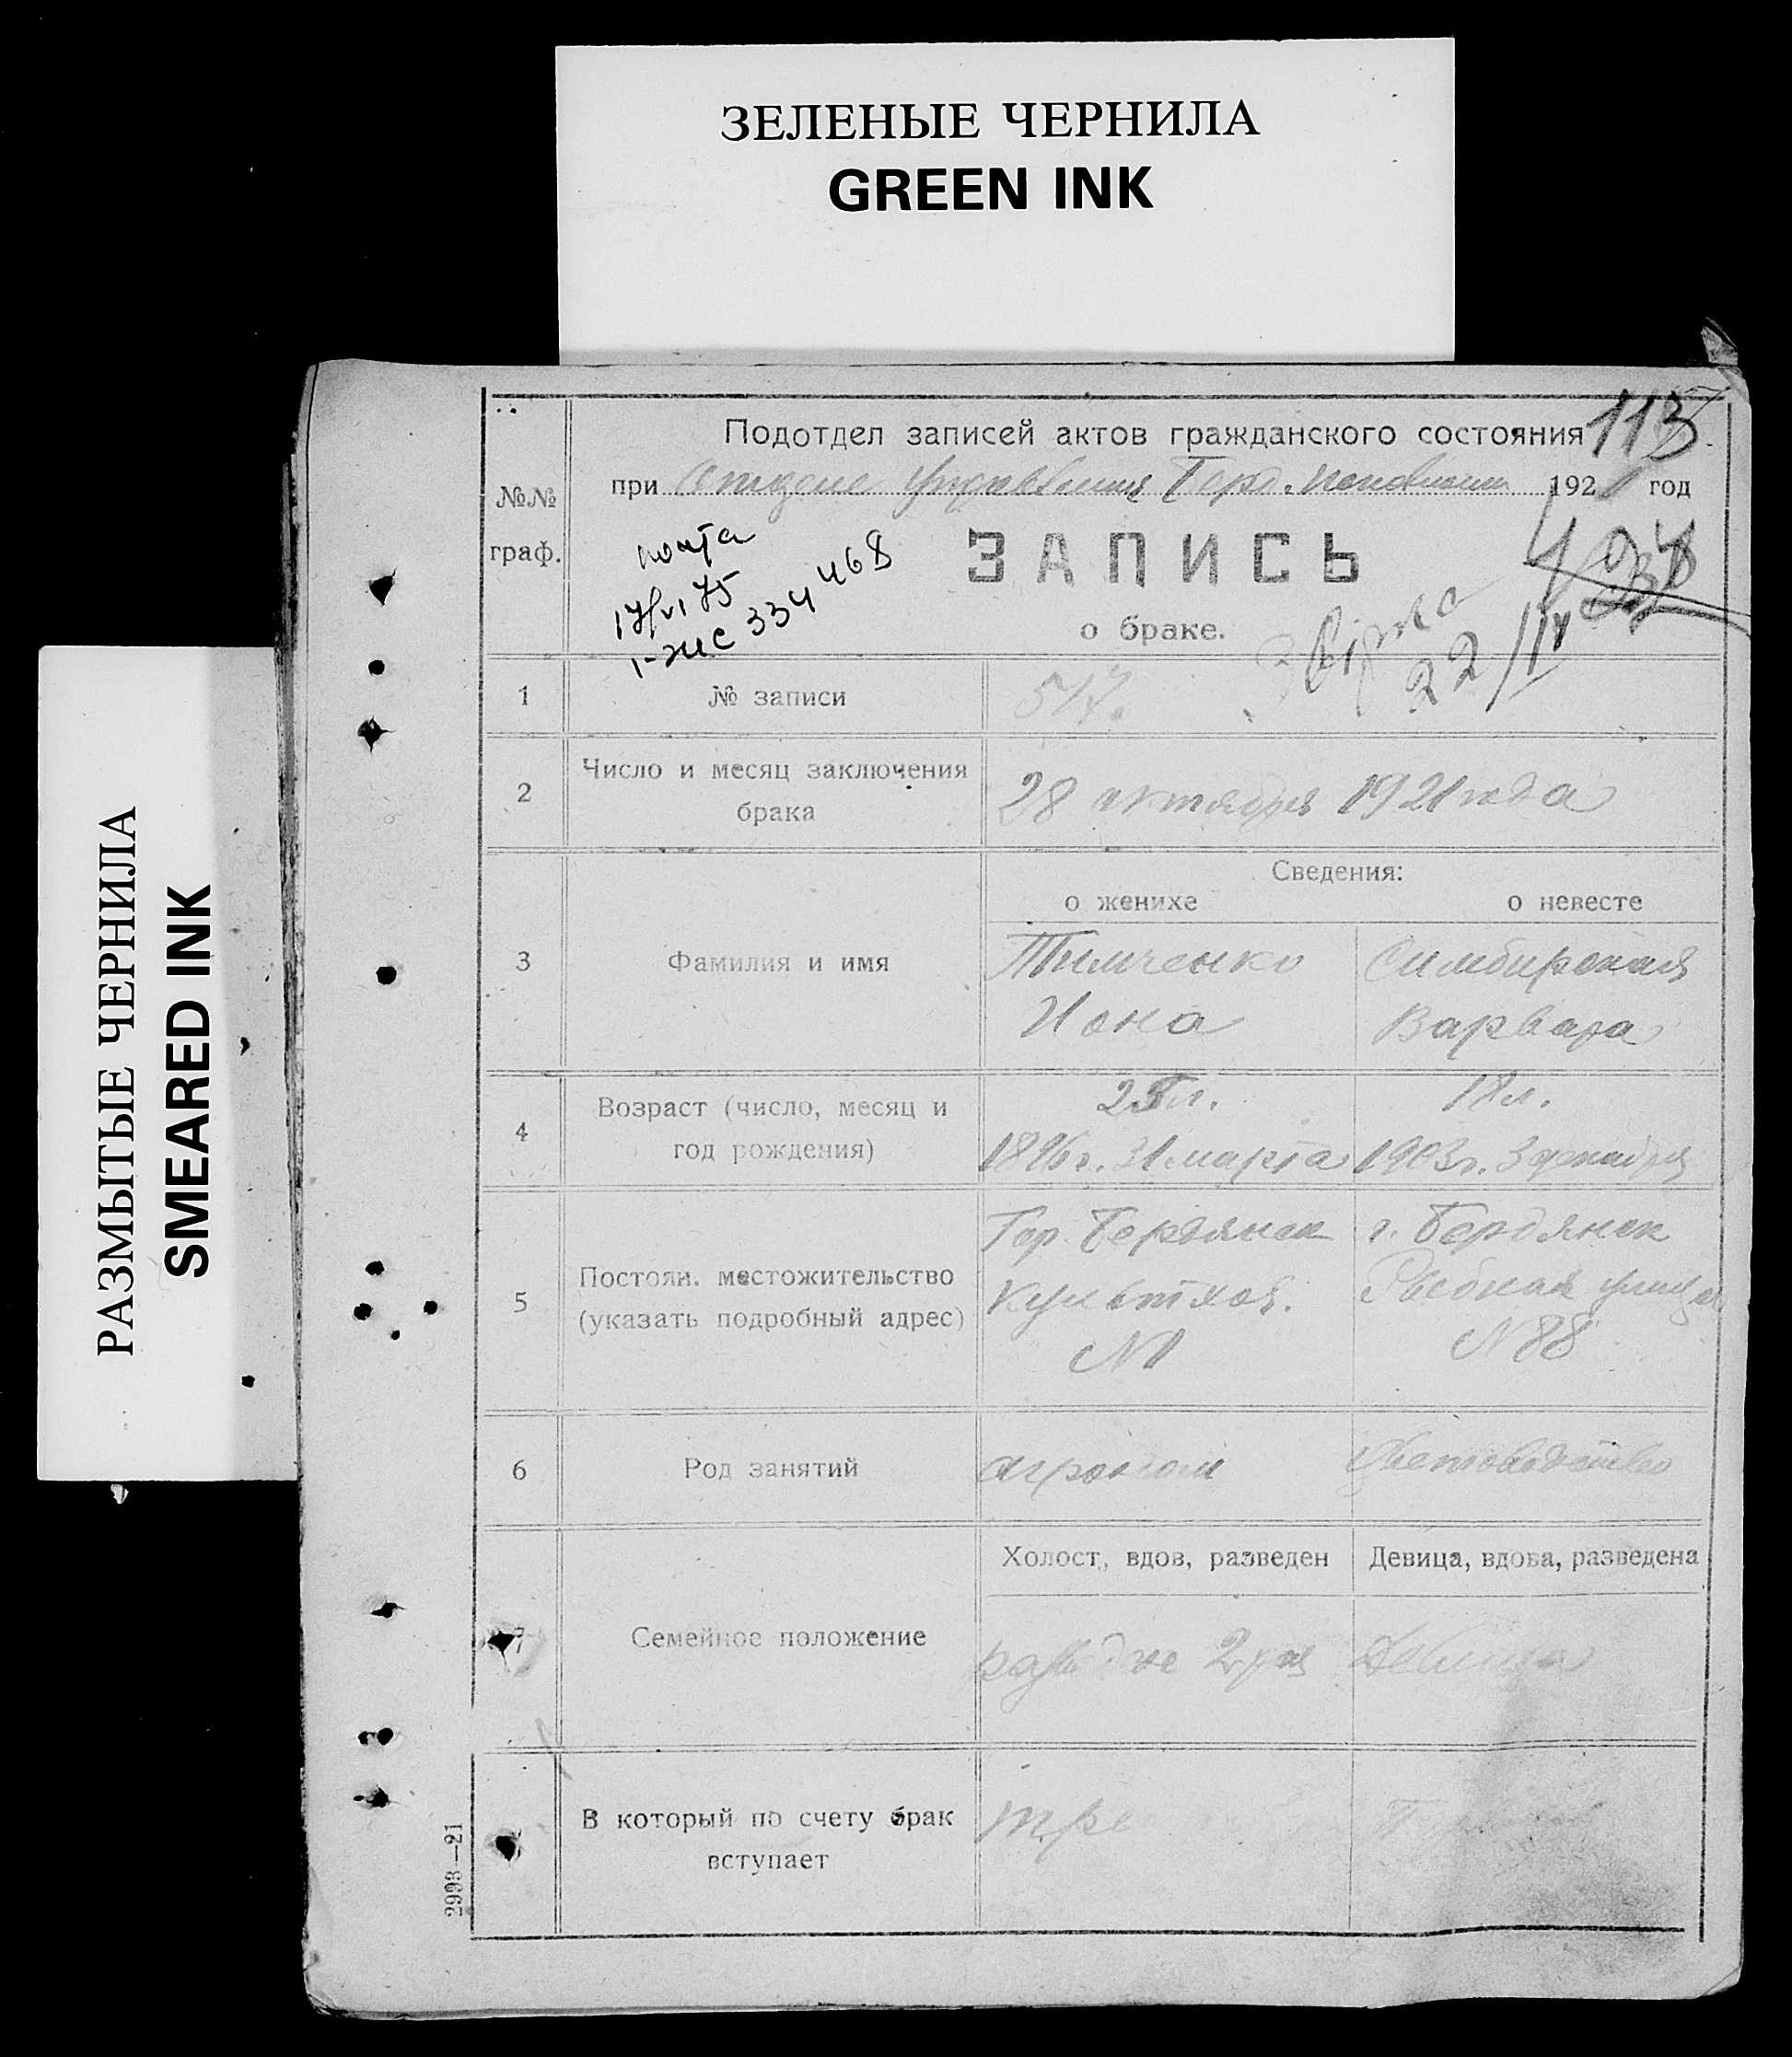 ЗЕЛЕНЫЕ ЧЕРНИЛА
GREEN INK
РАЗМЫТЫЕ ЧЕРНИЛА
SMEARED INK
113
Подотдел записей актов гражданского состояния
при Отделе Управления Берд. 192 год
№№
граф.
ЗАПИСЬ
о браке.
17/VI 75
334468
22/IV
1
№ записи
517.
2
Число и месяц заключения
брака
28 октября 1921 года
Сведения:
о женихе
о невесте
3
Фамилия и имя
Тимченко
Иона
Симбирская
Варвара
4
Возраст (число, месяц и
год рождения)
25 л.
1896 г. 31 марта
18 л.
1903 г. 3 декабря
5
Постоян. местожительство
(указать подробный адрес)
Гор. Бердянск
культхоз.
№1
г. Бердянск
улица
№88
6
Род занятий
агроном
Цветоводство
7
Семейное положение
Холост, вдов, разведен
2 раз
Девица, вдова, разведена
Девица
В который по счету брак
вступает
тре
2998—21